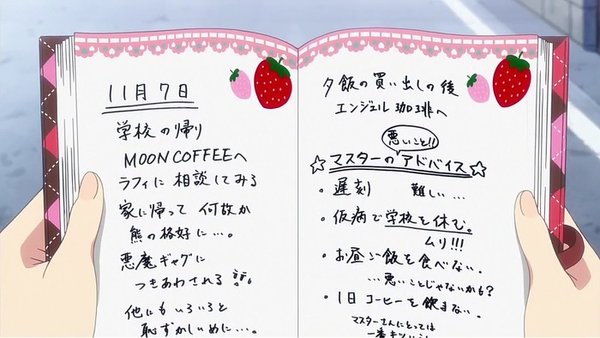 11月7日
学校の帰り
MOON COFFEEへ
ラフィに相談してみる
家に帰って何故か
熊の格好に…。
悪魔ギャグに
つきあわされる
他にもいろいろと
恥ずかしいめに…。
夕飯の買い出しの後
エンジェル珈琲へ
悪いこと!!
☆マスターのアドバイス☆
・遅刻 難しい…
・仮病で学校を休む。
ムリ!!!
・お昼ご飯を食べない。
…悪いことじゃないかも?
・1日コーヒーを飲まない。
マスターさんにとっては